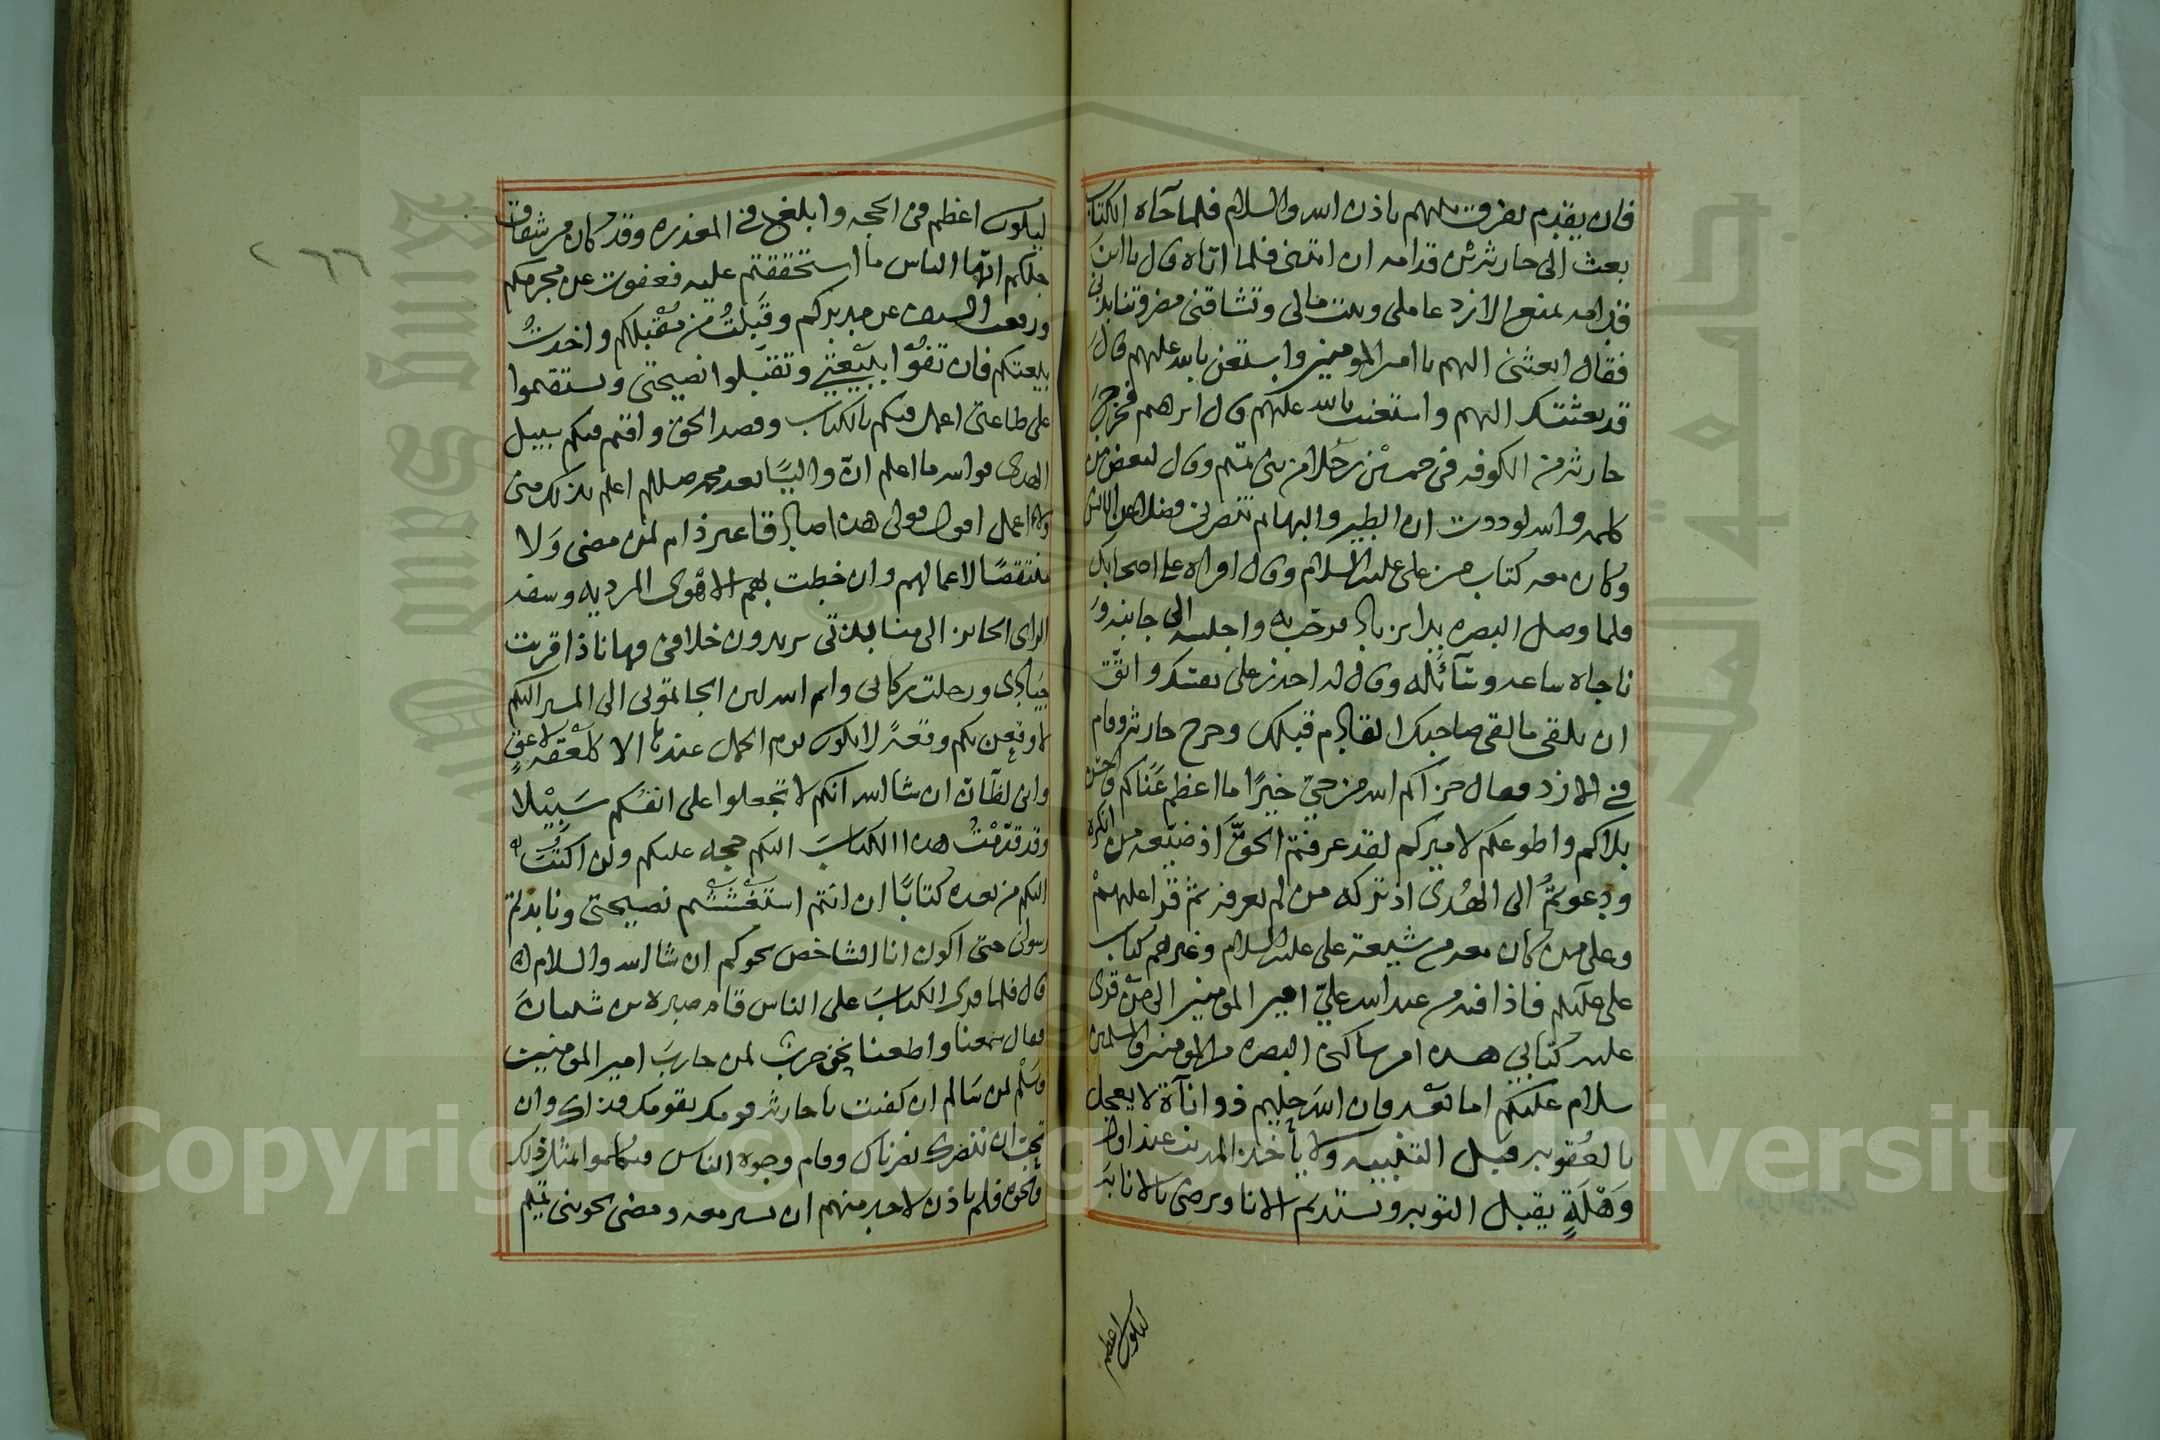 فان يقدم تفرقت كلمتهم باذن الله والسلام فلما جاه الكتاب
بعث الى حارثة بن قدامه ان ائتنى فلما اتاه قال يا ابن
قدامه تمنع الازد عاملى وبيت مالى وتشاقنى مضر وتنابذنى
فقال ابعثنى اليهم يا امير المومنين واستعن بالله عليهم قال
قد بعثتك اليهم واستعنت بالله عليهم قال ابرهيم فخرج
حارثه من الكوفه فى خمسين رجلا من بنى تميم وقال لبعض من
كلمه والله لوددت ان الطير والبهايم تنصرنى فضلا عن الناس
وكان معه كتاب من على عليه السلام وقال اقراه على اصحابك
فلما وصل البصره بدا بزياد فرحب به واجلسه الى جانبه و
ناجاه ساعه وسآئله وقال له احذر على نفسك واتق
ان تلقى ما لقى صاحبك القادم قبلك وخرج حارثه وقام
فى الازد فقال جزاكم الله من حى خيرًا ما اعظم عَناكم واحسن
بلاكم واطوعكم لاميركم لقد عرفتم الحق اذ ضيعه من انكره
ودعوتم الى الهُدى اذ تركه من لم يعرفه ثم قرا عليهم
وعلى من كان معه من شيعة على عليه السلام وغيرهم كتاب
على عليكم فاذا فيه من عبد الله علىّ امير المومنين الى من قرى
عليه كتابى هذا من ساكنى البصره من المومنين والمسلمين
سلام عليكم اما بعد فان الله حليم ذو اناة لا يعجل
بالعُقوبه قبل التنبيه ولا يأخذ المذنب عند اول
وَهْلَةٍ يقبل التوبه ويستديم الانا ويرضى بالانابه
ليكون اعظم
ليكون اعظم فى الحجه وابلغ فى المعذره وقد كان من شقاق
جلكم ايها الناس ما استحققتم عليه فعفوت عن مجرمكم
ورفعت السيف عن مدبركم وقَبِلتُ من مُقْبلكم واخذتُ
بيعتكم فان تَفُوْا ببَيْعتى وتقبلوا نصيحتى وتستقيموا
على طاعتى اعمل فيكم بالكتاب وقصد الحق واقيم فيكم سبيل
الهدى فوالله ما اعلم انّ واليًا بعد محمد صلى الله اعلم بذلك منى
ولا اعمل اقول قولى هذا صادقا غير ذام لمن مضى وَلا
منتقصًا لاعمالهم وان خبطت بهم الاهْوى المرديه وسفه
الراى الجاير الى منابذتى تريدون خلافى فها نا ذا قربت
جيادى ورحلت ركابى وايم الله لين الجاتمونى الى المسير اليكم
لاوقعن بكم وقعةً لا يكون يوم الجمل عندها الا كلَعْقه لاعقٍ
وانى لظانّ ان شا الله انكم لا تجعلوا على انفسكم سَبِيْلًا
وقد قدّمْتُ هذا الكتابَ اليكم حجه عليكم ولن اكتُبَ
اليكم من بعده كتابًا ان انتم استَغْششْتم نصيحتى ونابذتم
رسولى حتى اكون انا الشاخص نحوكم ان شا الله والسلام
قال فلما قرى الكتابَ على الناس قام صبره بن شيمانَ
فقال سمعنا واطعنا نحن حرب لمن حاربَ امير المومنين
وسلْم لمن سَالم ان كفيت يا حارثه قومك بقومك فذاك وان
تحبّ ان ننصرك نصرناك وقام وجوه الناس فتكلموا بمثل ذلك
ونحوه فلم ياذن لاحد منهم ان يسير معه ومضى نحو بنى تميم
٢٦٦
Copyright © King Saud University
King Saud University
جامعة الملك سعود